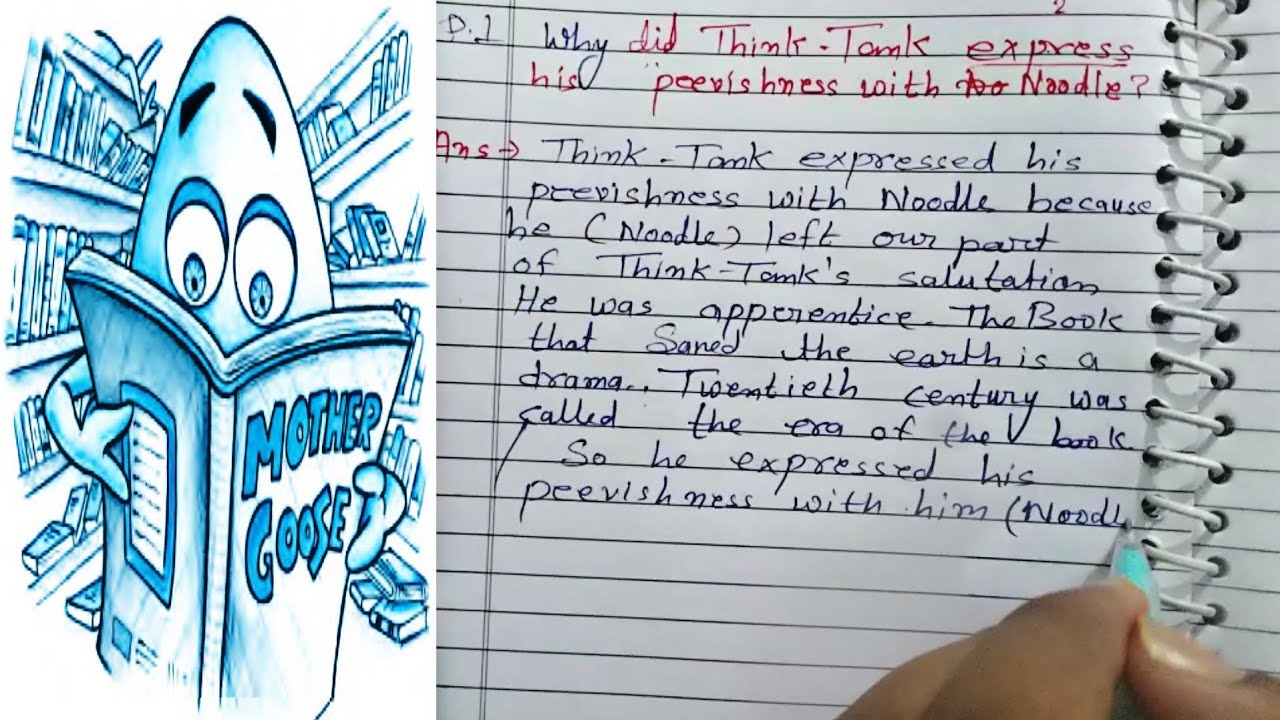 MOTHER
GOOSE
2
D.1 Why did Think-Tank express
his peevishness with Noodle?
Ans→ Think-Tank expressed his
peevishness with Noodle because
he (Noodle) left our part
of Think-Tank's salutation
He was apperentice. The Book
that Saned the earth is a
drama.. Twentieth century was
called the era of the book
So he expressed his
peevishness with him (Noodle